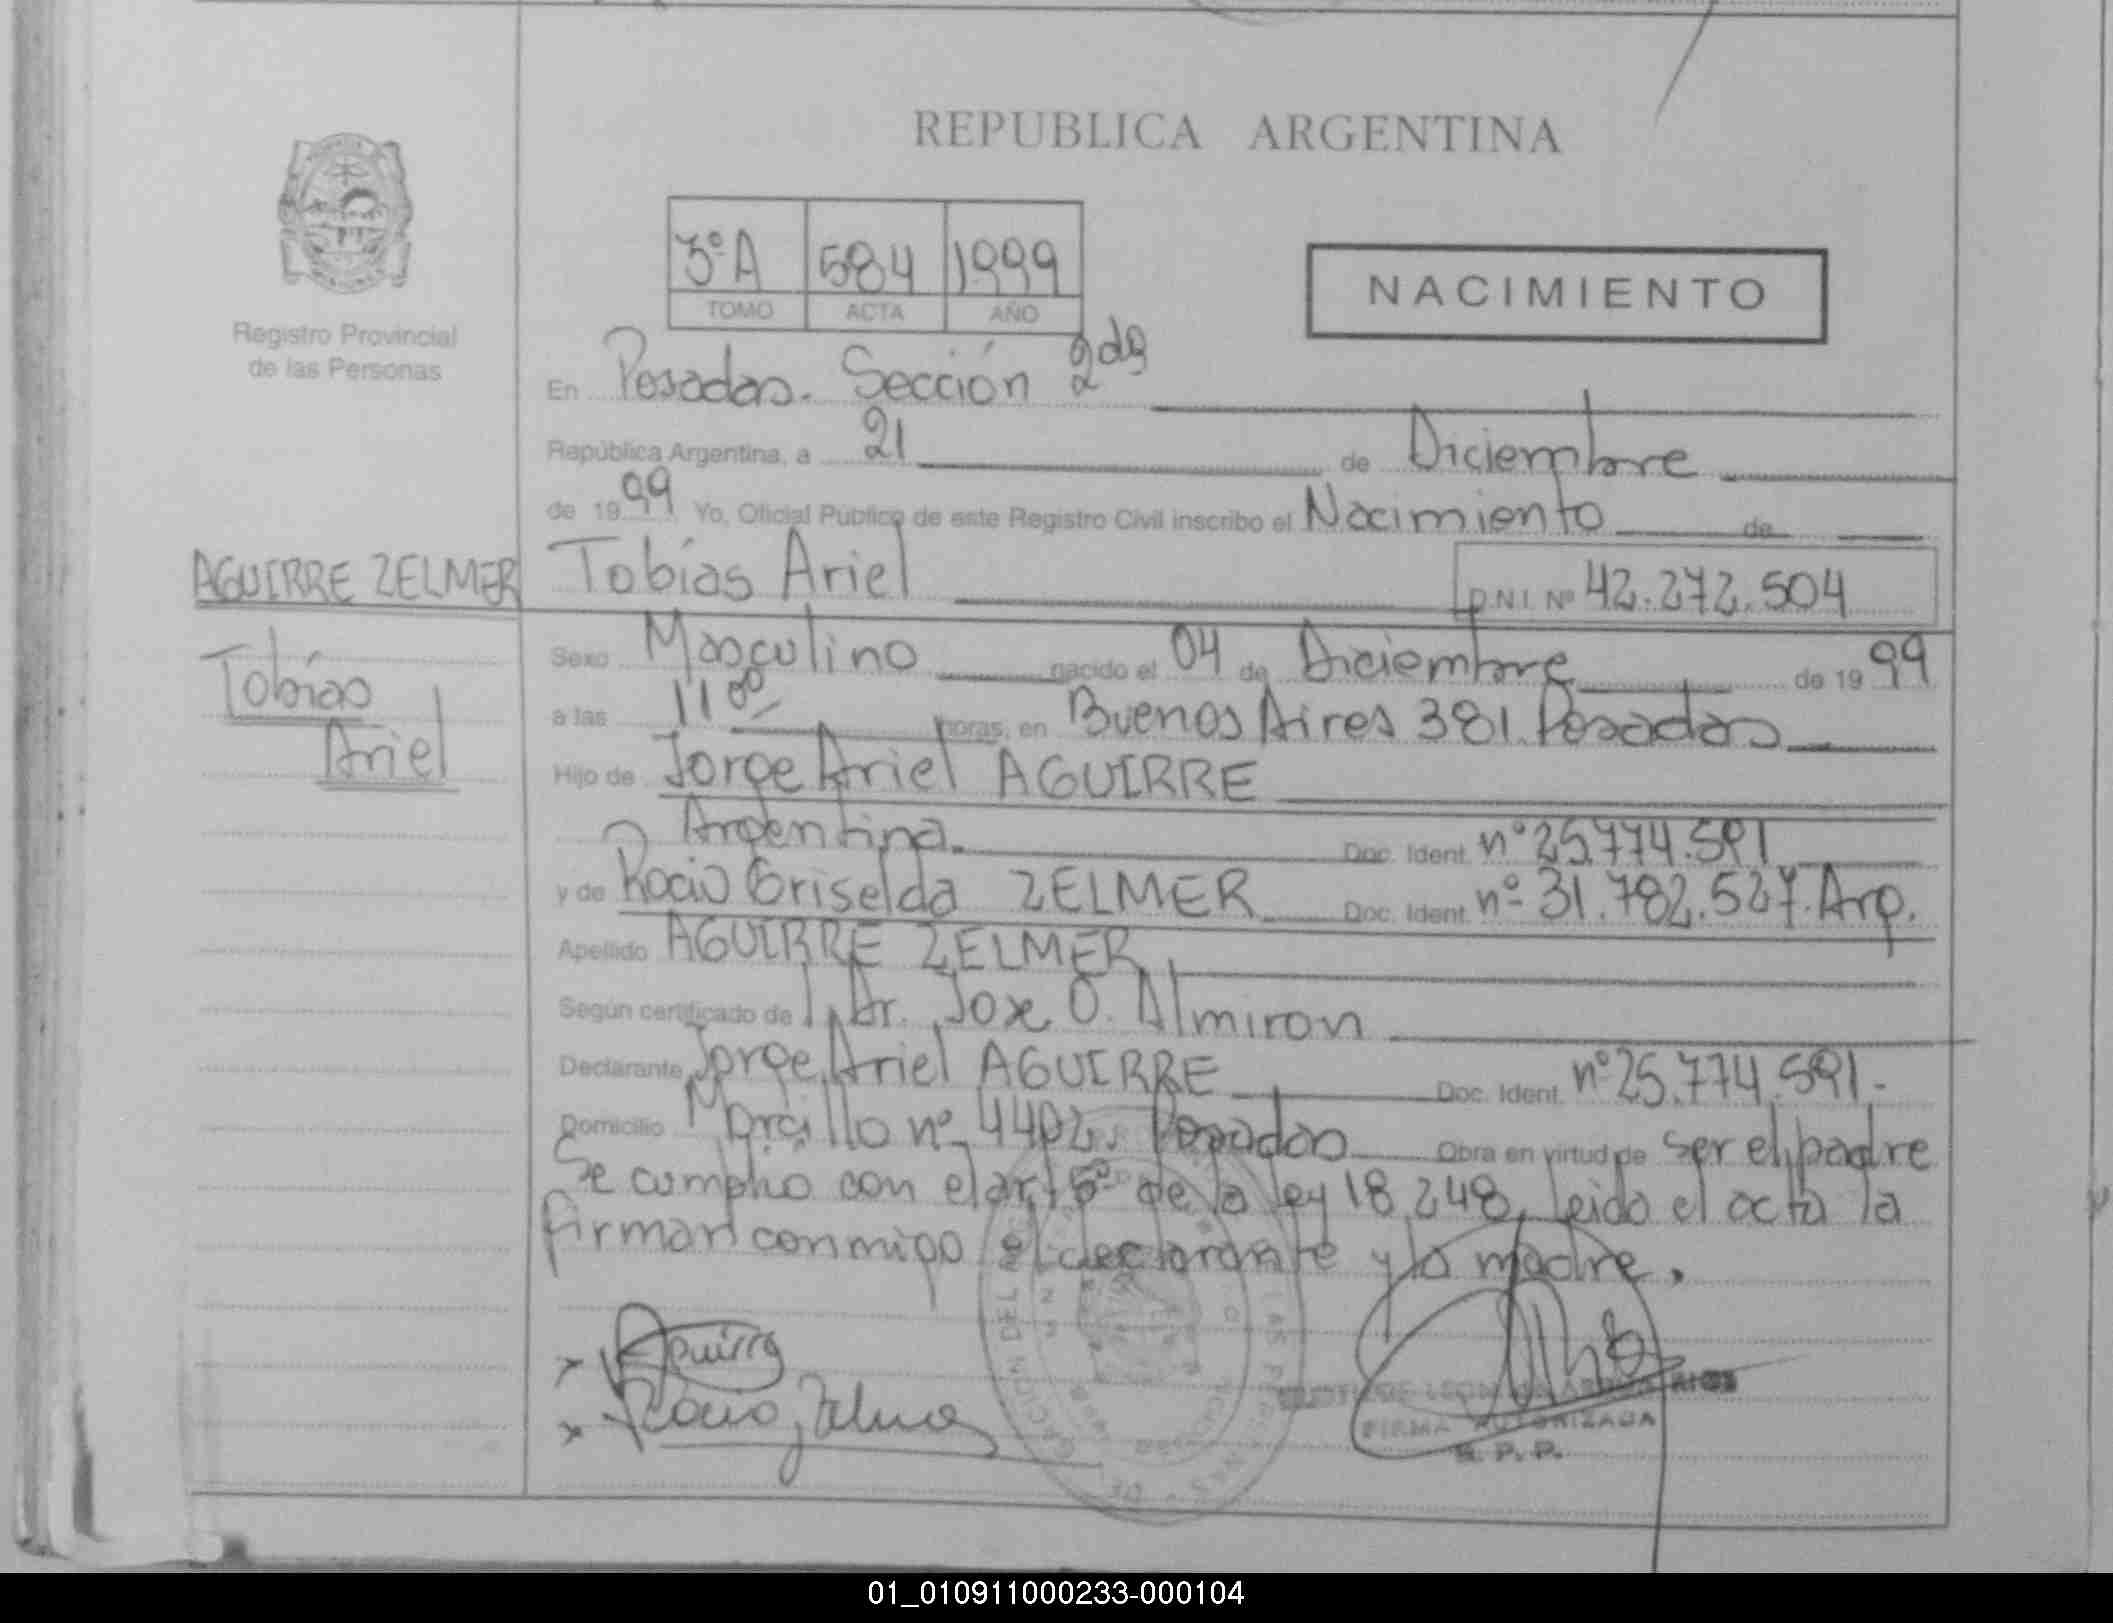 REPUBLICA ARGENTINA
3ºA 584 1999
TOMO ACTA AÑO
NACIMIENTO
Registro Provincial
de las Personas
En Posadas. Sección 2da
República Argentina, a 21 de Diciembre
de 1999 Yo, Oficial Público de este Registro Civil inscribo el Nacimiento de
AGUIRRE ZELMER
Tobías
Ariel
Tobías Ariel D.N.I. Nº 42.272.504
Sexo Masculino nacido el 04 de Diciembre de 1999
a las 11 00 horas, en Buenos Aires 381. Posadas
Hijo de Jorge Ariel AGUIRRE
Argentina. Doc. Ident. nº 25.774.591
y de Rocio Griselda ZELMER Doc. Ident. nº 31.782.527. Arg.
Apellido AGUIRRE ZELMER
Según certificado de Dr. Jose O. Almiron
Declarante Jorge Ariel AGUIRRE Doc. Ident. nº 25.774.591.-
Domicilio nº 4402. Posadas Obra en virtud de ser el padre
Se cumplio con el art 5º de la ley 18.248, leida el acta la
firman conmigo el declarante y la madre.
Aguirre
Rocio Zelmer
FIRMA AUTORIZADA
R. P. P.
01_010911000233-000104